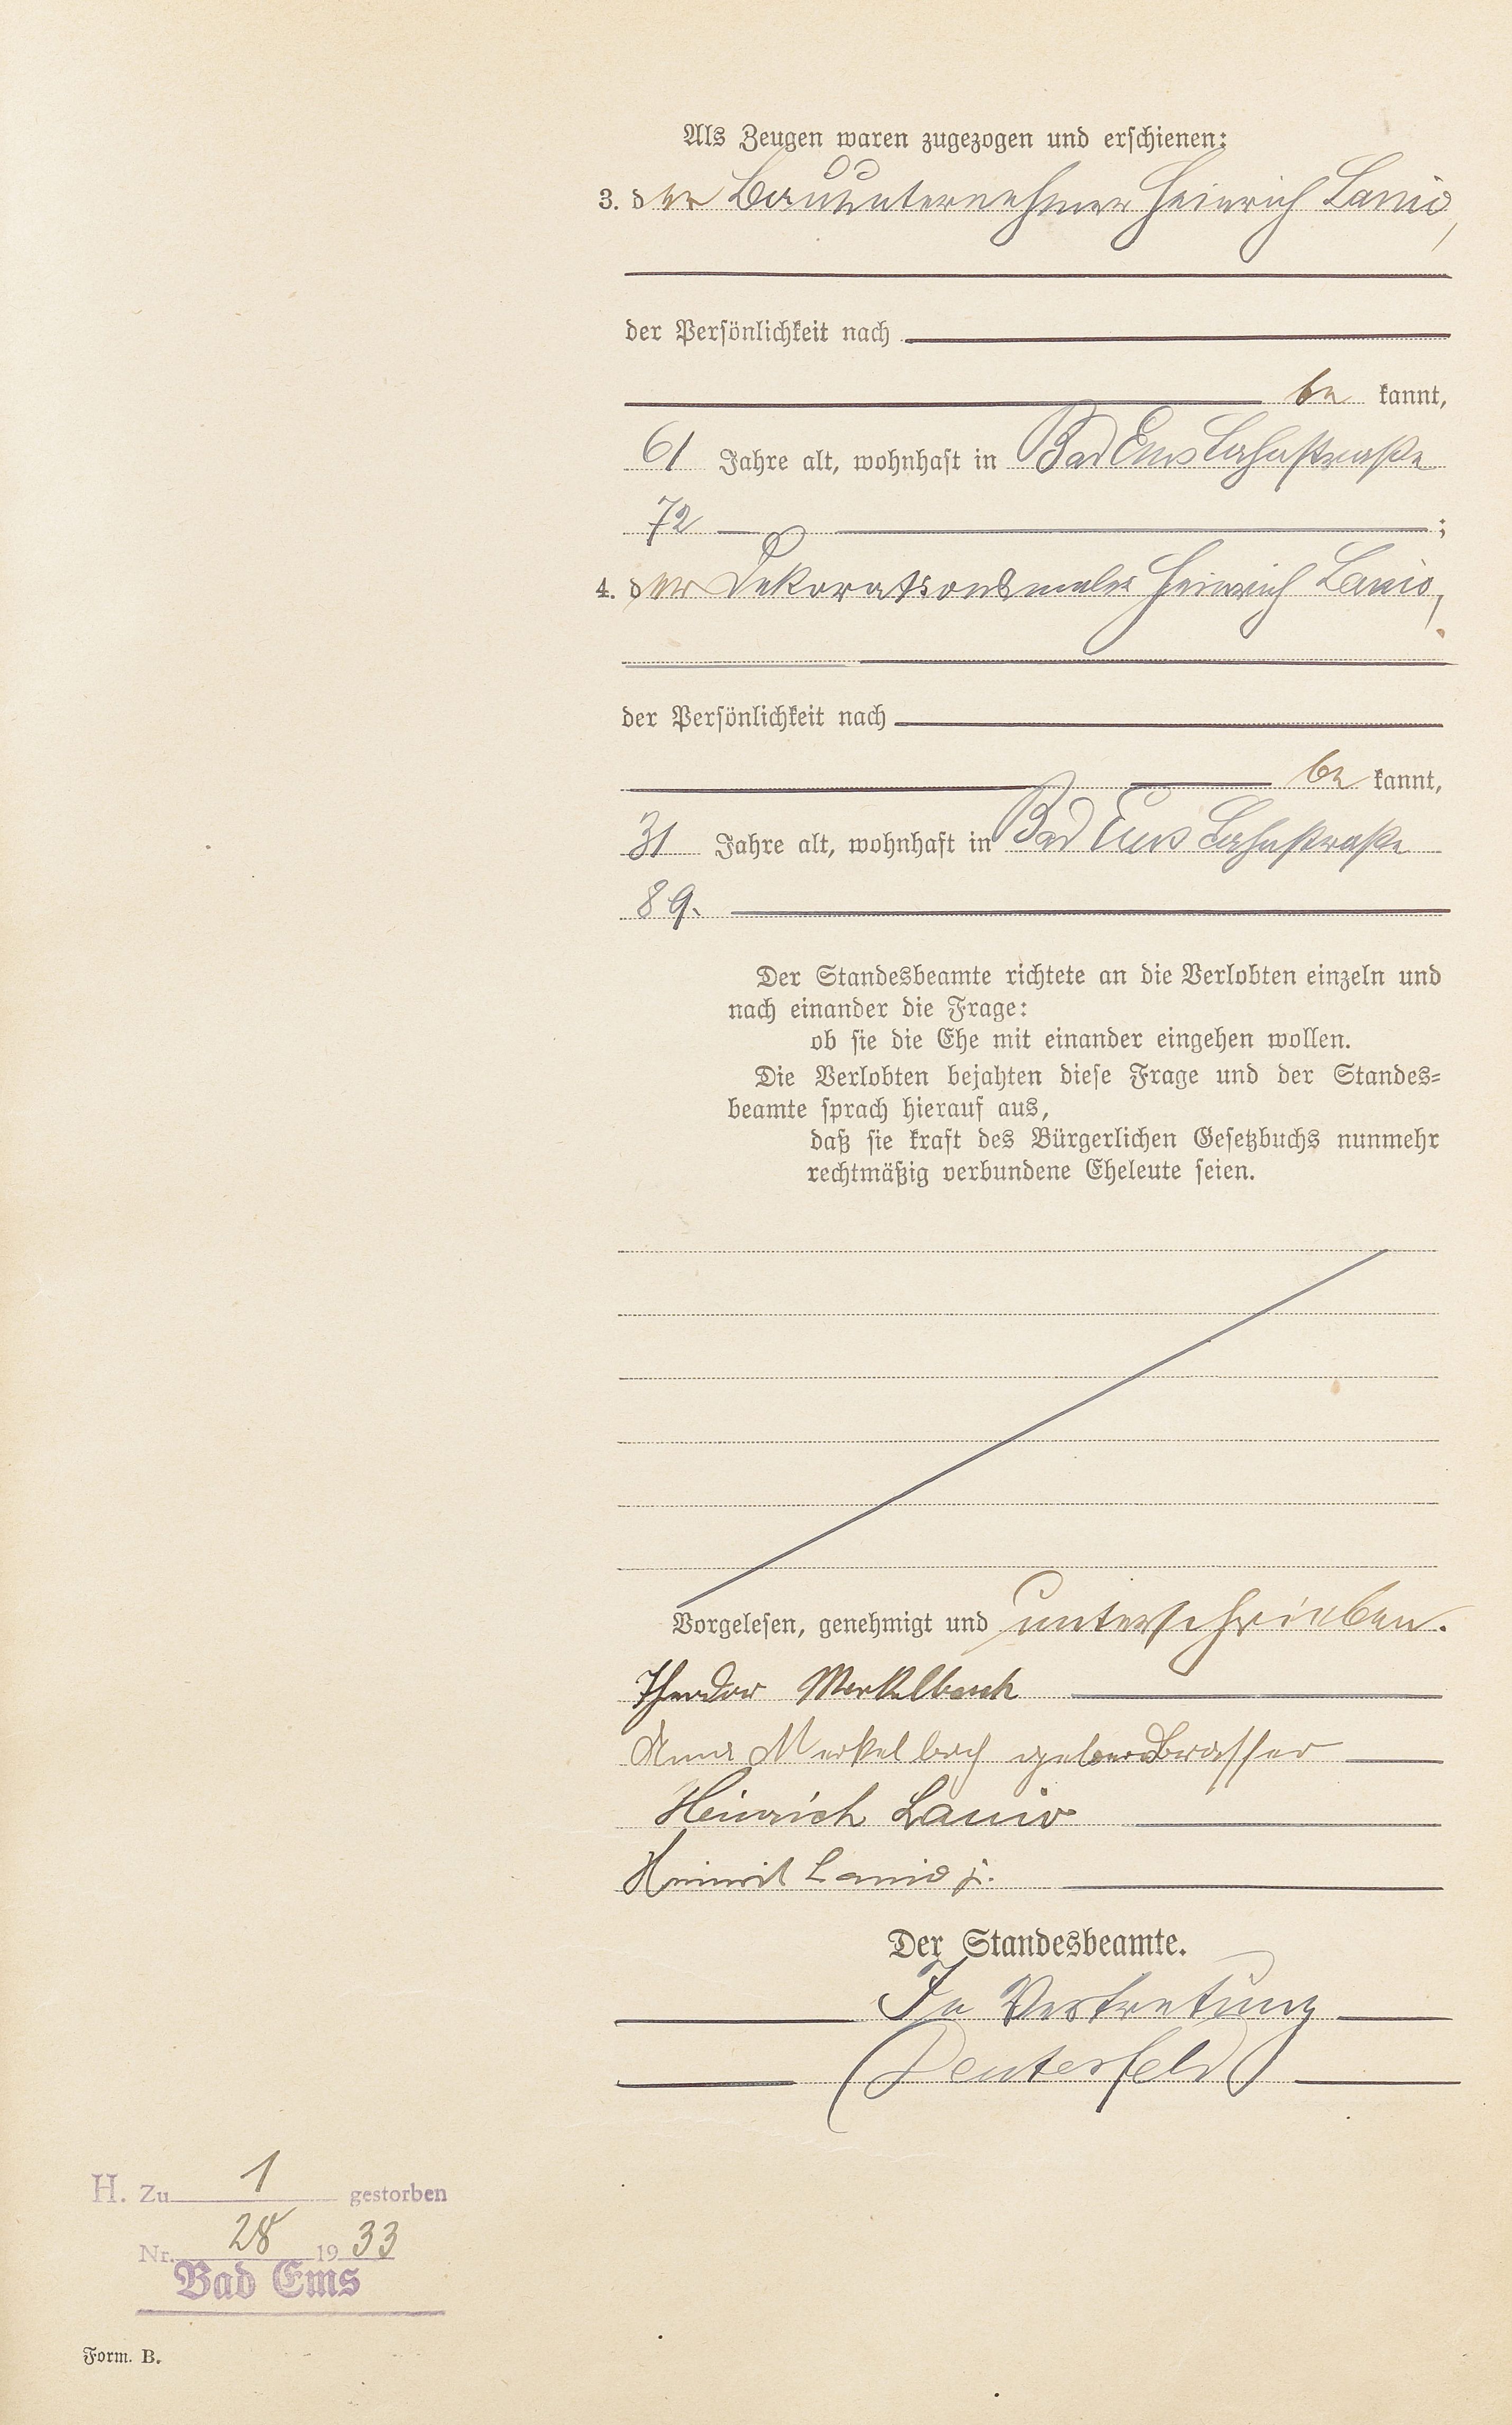 Als Zeugen waren zugezogen und erschienen:
3. der Bauunternehmer Heinrich Lanio,
der Persönlichkeit nach
be kannt,
61 Jahre alt, wohnhaft in Bad Ems Lahnstraße
72 ;
4. der Dekorationsmaler Heinrich Lanio,
der Persönlichkeit nach
be kannt,
31 Jahre alt, wohnhaft in Bad Ems Lahnstraße
89.
Der Standesbeamte richtete an die Verlobten einzeln und
nach einander die Frage:
ob sie die Ehe mit einander eingehen wollen.
Die Verlobten bejahten diese Frage und der Standes=
beamte sprach hierauf aus,
daß sie kraft des Bürgerlichen Gesetzbuchs nunmehr
rechtmäßig verbundene Eheleute seien.
Vorgelesen, genehmigt und unterschrieben.
Theodor Merkelbach
Anna Merkelbach
Heinrich Lanio
Heinrich Lanio jr.
Der Standesbeamte.
In Vertretung
H. Zu 1 gestorben
Nr. 28 1933
Bad Ems
Form. B.